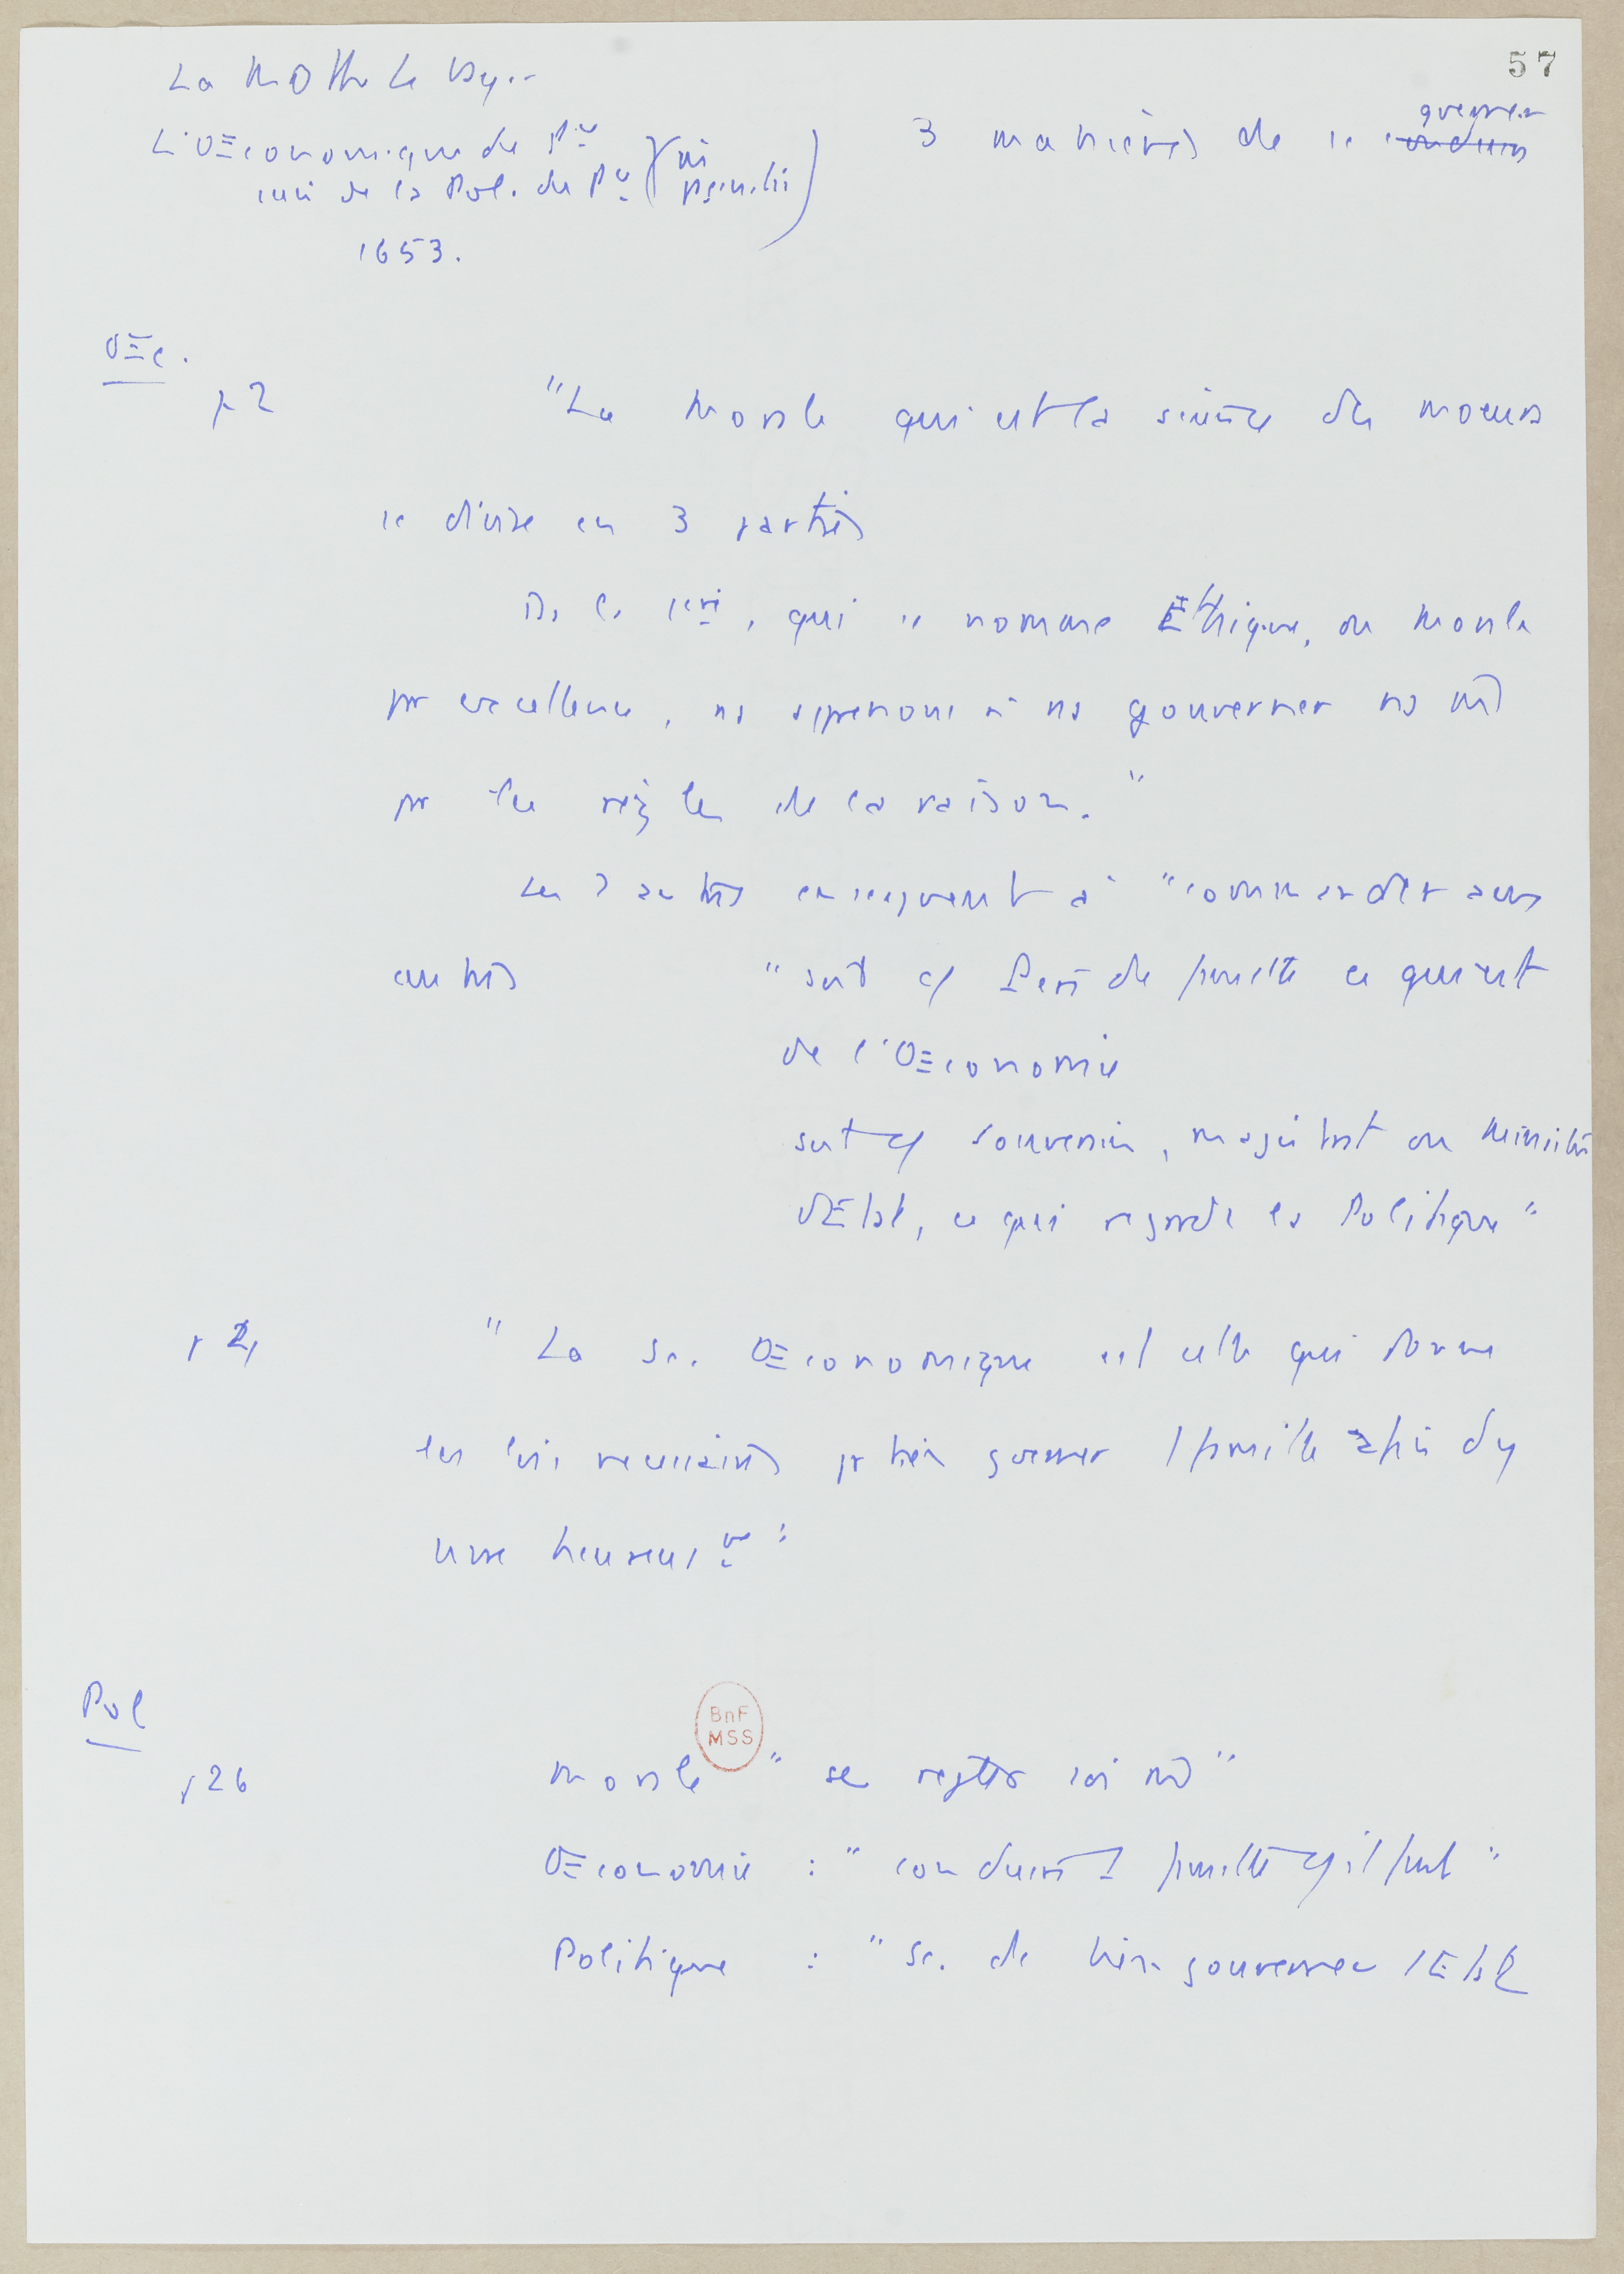 57
La Mothe Le Vay..
L'OEconomique du Pce
suivi de la Pol. du Pce
1653.
3 manières de se conduire
gverner
OEc.
p 2 "La Morale qui est la science des moeurs
se divise en 3 parties
Ds la 1ère, qui se nomme Ethique, ou Morale
pr excellence, ns apprenons à ns gouverner ns m̂
pr les règles de la raison."
Les 2 autres enseignent à "commander aux
autres "soit cō Père de famille ce qui est
de l'OEconomie
soit cō Souverain, magistrat ou Ministre
d'Etat, ce qui regarde la Politique"
p 2 "La Sc. OEconomique est celle qui donne
les lois necessaires pr bien gverner 1 famille afin d'y
vivre heureuset"
Pol
p 26 morale "se regler soi m̂"
OEconomie : "conduire 1 famille cō il faut"
Politique : "Sc. de bien gouverner l'Etat
BnF
MSS